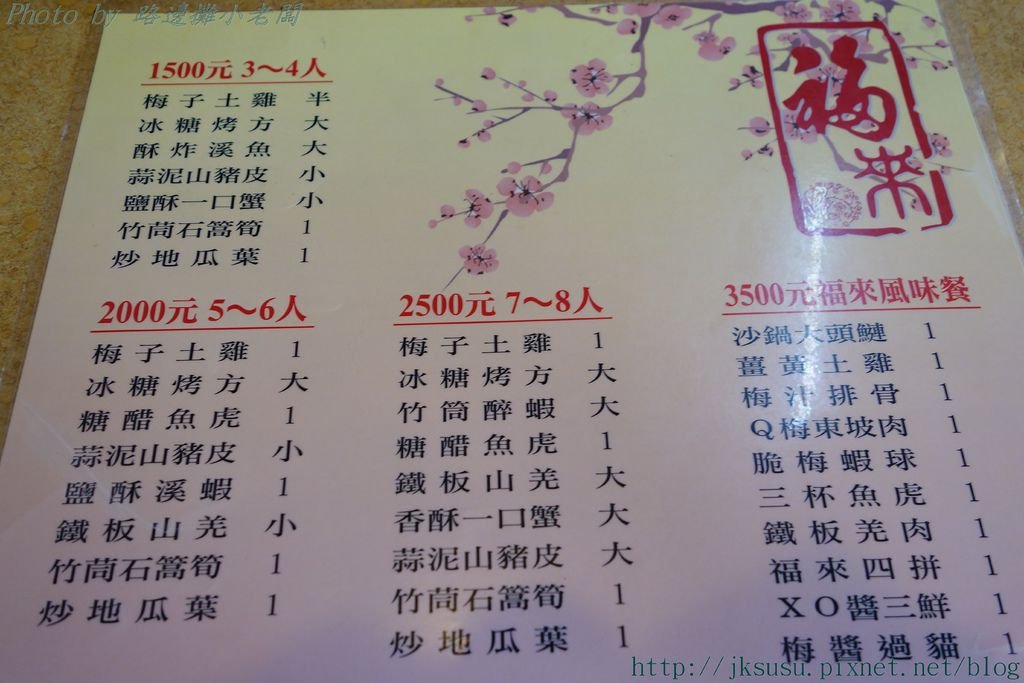 Photo by 路邊攤小老闆
福來
1500元 3～4人
梅子土雞 半
冰糖烤方 大
酥炸溪魚 大
蒜泥山豬皮 小
鹽酥一口蟹 小
竹茼石篙筍 1
炒地瓜葉 1
2000元 5～6人
梅子土雞 1
冰糖烤方 大
糖醋魚虎 1
蒜泥山豬皮 小
鹽酥溪蝦 1
鐵板山羌 小
竹茼石篙筍 1
炒地瓜葉 1
2500元 7～8人
梅子土雞 1
冰糖烤方 大
竹筒醉蝦 大
糖醋魚虎 1
鐵板山羌 大
香酥一口蟹 大
蒜泥山豬皮 大
竹茼石篙筍 1
炒地瓜葉 1
3500元福來風味餐
沙鍋大頭鰱 1
薑黃土雞 1
梅汁排骨 1
Q梅東坡肉 1
脆梅蝦球 1
三杯魚虎 1
鐵板羌肉 1
福來四拼 1
XO醬三鮮 1
梅醬過貓 1
http://jksusu.pixnet.net/blog